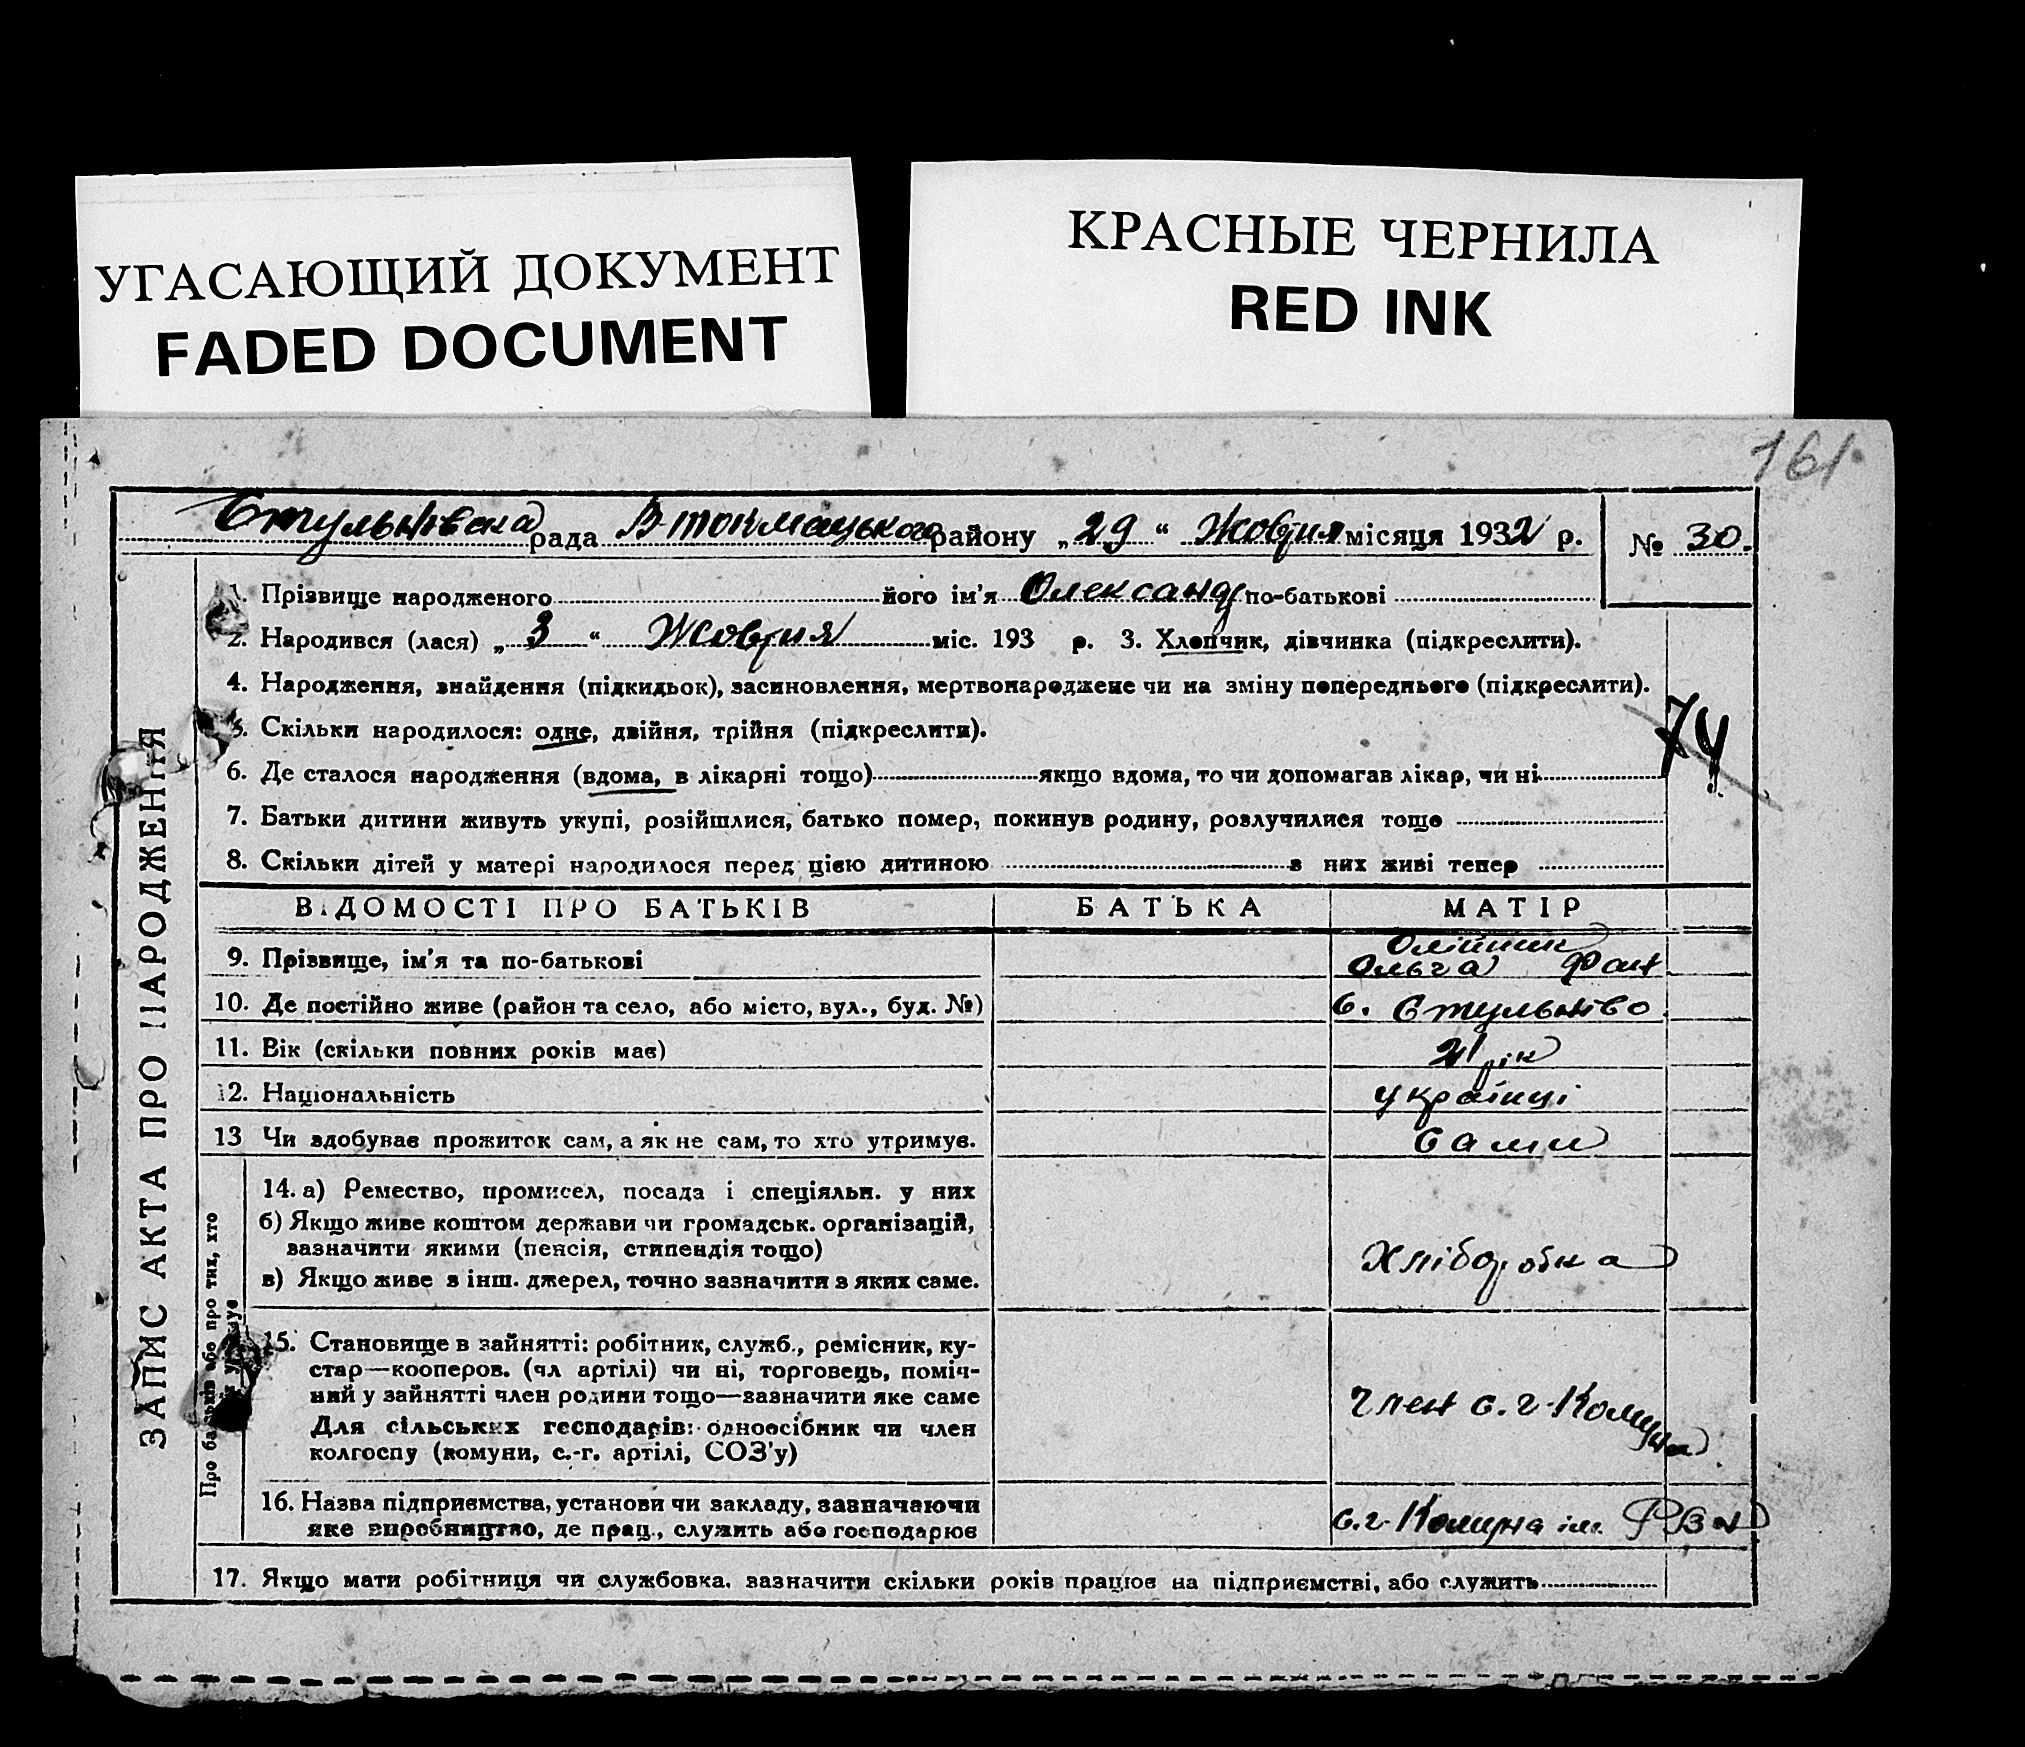 УГАСАЮЩИЙ ДОКУМЕНТ
FADED DOCUMENT
КРАСНЫЕ ЧЕРНИЛА
RED INK
161
Стульнівска рада В-токмацького району „29“ Жовтня місяця 1932 р. № 30.
1. Прізвище народженого його ім'я Олександр по-батькові
2. Народився (лася) „3“ Жовтня міс. 193 р. 3. Хлопчик, дівчинка (підкреслити).
4. Народження, знайдення (підкидьок), засиновлення, мертвонароджене чи на зміну попереднього (підкреслити).
74
5. Скільки народилося: одне, двійня, трійня (підкреслити).
6. Де сталося народження (вдома, в лікарні тощо) якщо вдома, то чи допомагав лікар, чи ні
7. Батьки дитини живуть укупі, розійшлися, батько помер, покинув родину, розлучилися тощо
8. Скільки дітей у матері народилося перед цією дитиною з них живі тепер
ЗАПИС АКТА ПРО НАРОДЖЕННЯ
ВІДОМОСТІ ПРО БАТЬКІВ БАТЬКА МАТІР
9. Прізвище, ім'я та по-батькові Олійник
Ольга Фан
10. Де постійно живе (район та село, або місто, вул., буд. №) с. Стульнєво
11. Вік (скільки повних років має) 21 рік
12. Національність українці
13 Чи здобував прожиток сам, а як не сам, то хто утримує. Сами
Про батьків або про тих, хто
14. а) Ремество, промисел, посада і спеціяльн. у них
б) Якщо живе коштом держави чи громадськ. організацій,
зазначити якими (пенсія, стипендія тощо)
в) Якщо живе з інш. джерел, точно зазначити з яких саме.
Хліборобка
15. Становище в зайнятті: робітник, служб., ремісник, ку-
стар—кооперов. (чл артілі) чи ні, торговець, поміч-
ний у зайнятті член родини тощо—зазначити яке саме
Для сільських господарів: одноосібник чи член
колгоспу (комуни, с.-г. артілі, СОЗ'у)
Член с. г. Комуна
16. Назва підприємства, установи чи закладу, зазначаючи
яке виробництво, де прац., служить або господарює
с. г. Комуна ім.
17. Якщо мати робітниця чи службовка, зазначити скільки років працює на підприємстві, або служить